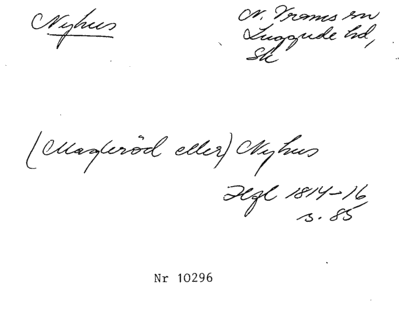 Nyhus
N. Vrams sn
Luggude hd,
Sk
(Magleröd eller) Nyhus
Hgl 1814-16
s. 85
Nr 10296